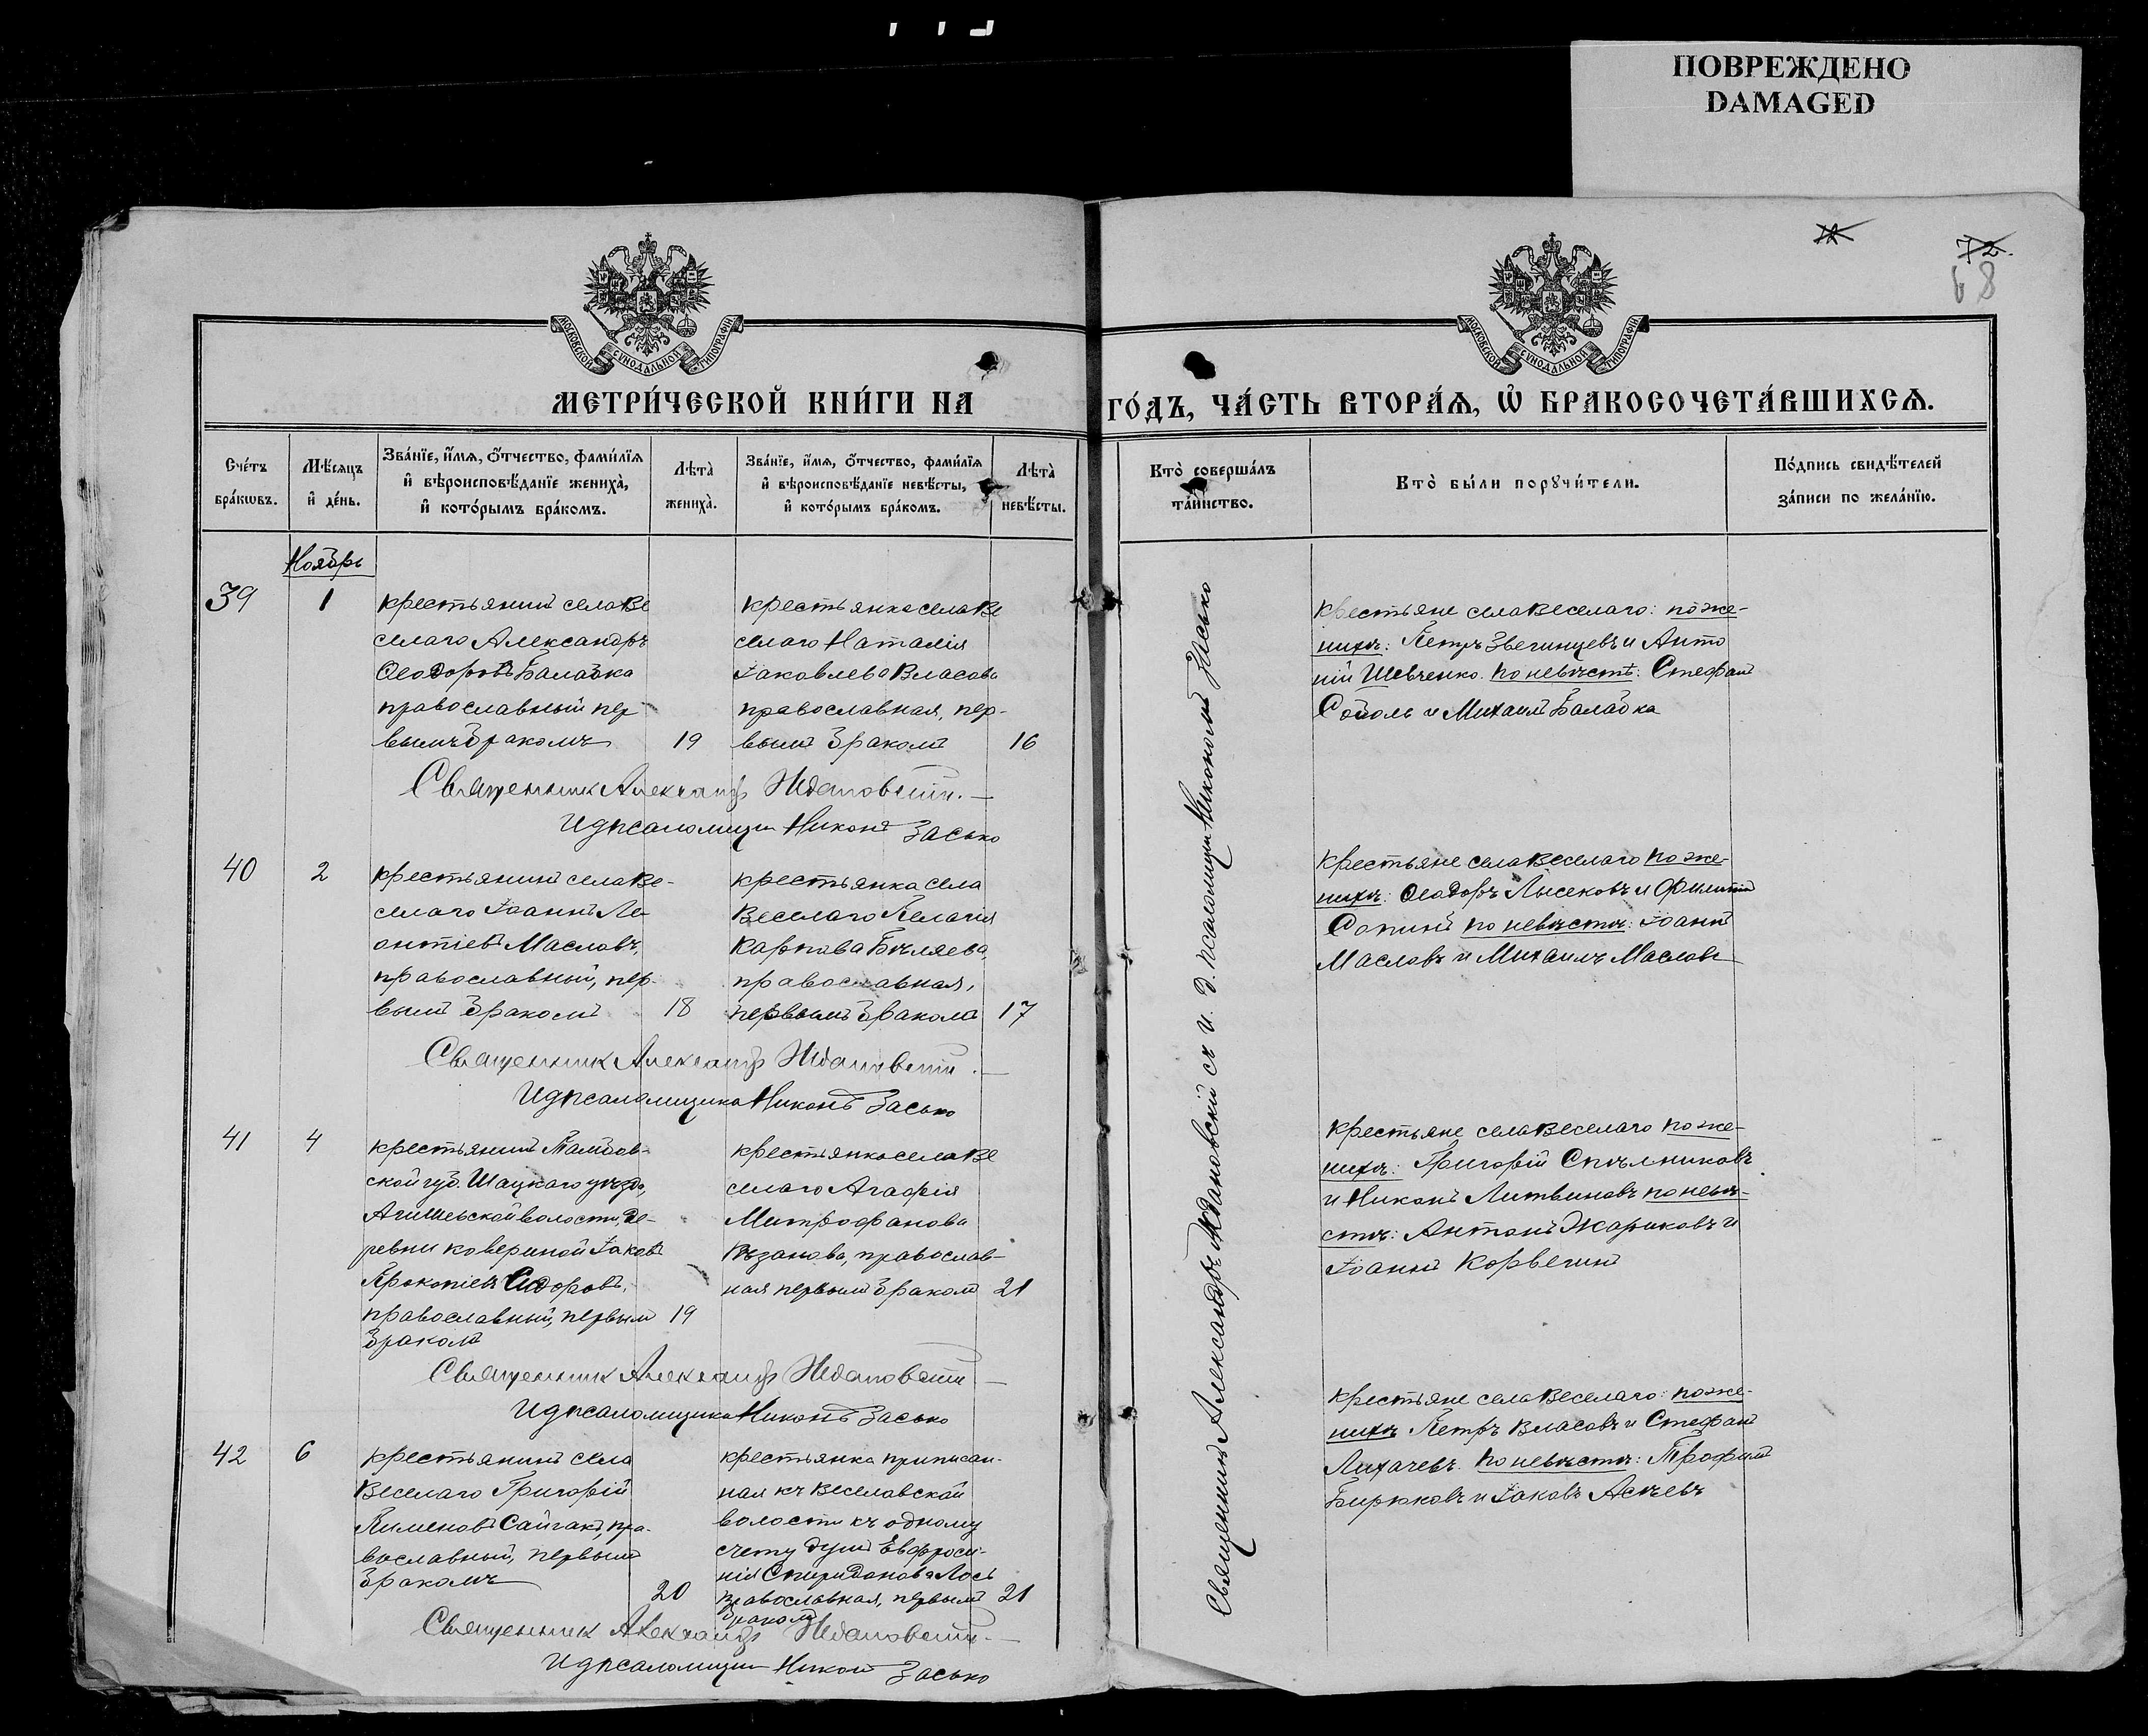 ПОВРЕЖДЕНО
DAMAGED
72.
68
МОСКОВСКОЙ СѴНОДАЛЬНОЙ ТИПОГРАФІИ
МОСКОВСКОЙ СѴНОДАЛЬНОЙ ТИПОГРАФІИ
МЕТРИ́ЧЕСКОЙ КНИ́ГИ НА
ГО́ДЪ, ЧА́СТЬ ВТОРА́Ѧ, Ѽ БРАКОСОЧЕТА́ВШИХСѦ.
Сче́тъ
бра́кѡвъ.
Мѣ́сѧцъ
и҆ де́нь.
Зва́нїе, и҆́мѧ, ѻ҆́тчество, фами́лїѧ
и҆ вѣроисповѣ́данїе жениха̀,
и҆ кото́рымъ бра́комъ.
Лѣ́та̀
жениха̀.
Зва́нїе, и҆́мѧ, ѻ҆́тчество, фами́лїѧ
и҆ вѣроисповѣ́данїе невѣ́сты,
и҆ кото́рымъ бра́комъ.
Лѣ́та̀
невѣ́сты.
Кто̀ соверша́лъ
та́инство.
Кто̀ бы́ли порꙋчи́тели.
По́дпись свидѣ́телей
за́писи по жела́нїю.
Ноябрь
39
1
крестьянинъ села Ве
селаго Александръ
Ѳеодоровъ Балабка
православный пер
вымъ бракомъ
19
крестьянка села Ве
селаго Наталія
Іаковлева Власова
православная, пер-
вымъ бракомъ
16
крестьяне села Веселаго: по же-
нихѣ: Петръ Звегинцевъ и Анто
ній Шевченко. по невѣстѣ: Стефанъ
Соболь и Михаилъ Балабка
Священникъ Александръ Ждановскій.
И д псаломщ Никонъ Засько
40
2
крестьянинъ села Ве-
селаго Іоаннъ Ле
онтіевъ Масловъ,
православный, пер-
вымъ бракомъ
18
крестьянка села
Веселаго Пелагія
Карпова Бѣляева,
православная,
первымъ бракомъ
17
крестьяне села Веселаго по же-
нихѣ: Ѳеодоръ Лысековъ и Филиппъ
Сопинъ по невѣстѣ: Іоаннъ
Масловъ и Михаилъ Масловъ
Священникъ Александръ Ждановскій.
И д псаломщика Никонъ Засько
41
4
крестьянинъ Тамбов-
ской губ. Шацкаго уѣзда,
Агишевской волости, де-
ревни Ковериной Іаковъ
Прокопіевъ Сидоровъ,
православный, первымъ
бракомъ
19
крестьянка села Ве
селаго Агафія
Митрофанова
Рѣзанова, православ-
ная первымъ бракомъ
21
крестьяне села Веселаго по же-
нихѣ: Григорій Стѣльниковъ
и Никонъ Литвиновъ по невѣ-
стѣ: Антонъ Жариковъ и
Іоаннъ Корвегинъ
Священникъ Александръ Ждановскій
И д псаломщика Никонъ Засько
42
6
крестьянинъ села
Веселаго Григорій
Пименовъ Сайгакъ, пра-
вославный, первымъ
бракомъ
20
крестьянка приписан-
ная къ Веселовской
волости къ одному
счету душъ Евфроси-
нія Спиридонова Лось
православная, первымъ
бракомъ
21
крестьяне села Веселаго: по же-
нихѣ Петръ Власовъ и Стефанъ
Лихачевъ. по невѣстѣ: Трофимъ
Бирюковъ и Іаковъ Асѣевъ
Священникъ Александръ Ждановскій.
И д псаломщ Никонъ Засько
Священникъ Александръ Ждановскій съ и. д. псаломщ Никономъ Засько